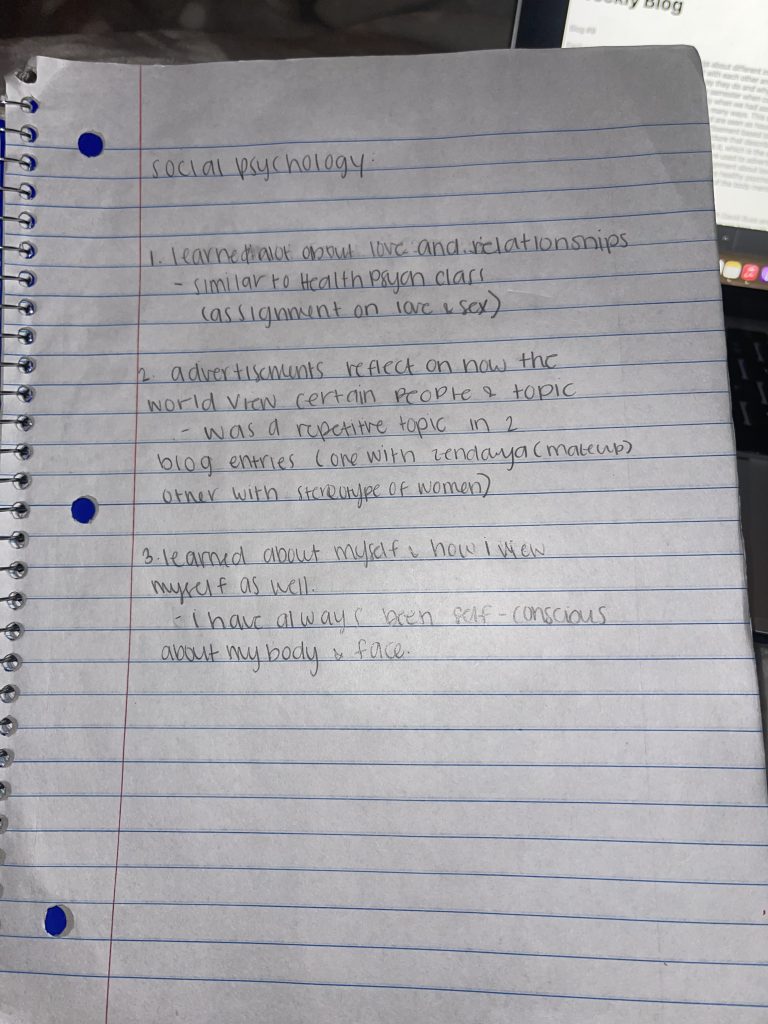 Weekly Blog
Blog #8
social psychology:
1. learned alot about love and relationships
- similar to Health Psych class
(assignment on love & sex)
2. advertisments reflect on how the
world view certain people & topic
- was a repetitive topic in 2
blog entries (one with zendaya (makeup)
other with stereotype of women)
3. learned about myself & how i view
myself as well.
- i have always been self-conscious
about my body & face.